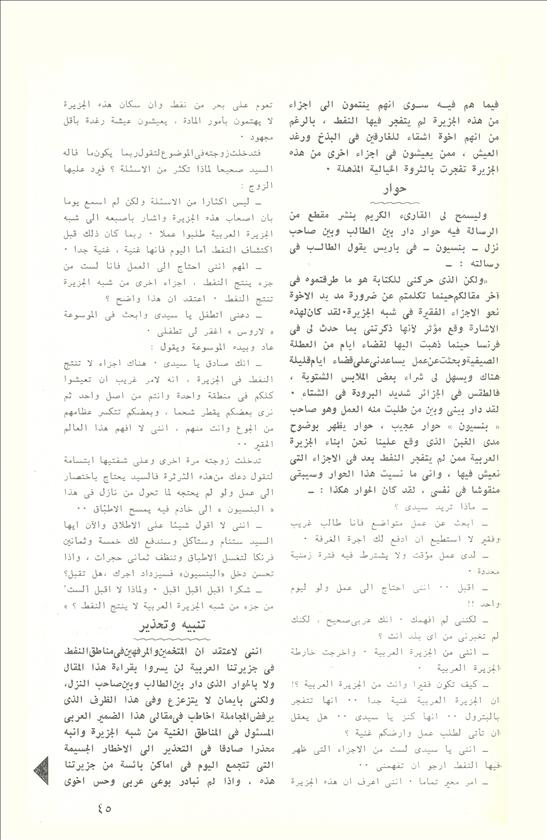 فيما هم فيه سوى انهم ينتمون الى اجزاء
من هذه الجزيرة لم يتفجر فيها النفط ، بالرغم
من انهم اخوة اشقاء للغارقين فى البذخ ورغد
العيش ، ممن يعيشون فى اجزاء اخرى من هذه
الجزيرة تفجرت بالثروة الخيالية المذهلة ٠
حوار
وليسمح لى القارىء الكريم بنشر مقطع من
الرسالة فيه حوار دار بين الطالب وبين صاحب
نزل ــ بنسيون ــ فى باريس يقول الطالب فى
رسالته : ــ
«ولكن الذى حركنى للكتابة هو ما طرقتموه فى
آخر مقالكم حينما تكلمتم عن ضرورة مد يد الاخوة
نحو الاجزاء الفقيرة فى شبه الجزيرة٠ لقد كان لهذه
الاشارة وقع مؤثر لأنها ذكرتنى بما حدث لى فى
فرنسا حينما ذهبت اليها لقضاء ايام من العطلة
الصيفية وبحثت عن عمل يساعدنى على قضاء ايام قليلة
هناك ويسهل لى شراء بعض الملابس الشتوية ،
فالطقس فى الجزائر شديد البرودة فى الشتاء ٠
لقد دار بينى وبين من طلبت منه العمل وهو صاحب
« بنسيون » حوار عجيب ، حوار يظهر بوضوح
مدى الغبن الذى وقع علينا نحن ابناء الجزيرة
العربية ممن لم يتفجر النفط بعد فى الاجزاء التى
نعيش فيها ، وانى ما نسيت هذا الحوار وسيبقى
منقوشا فى نفسى ، لقد كان الحوار هكذا : ــ
ــ ماذا تريد سيدى ؟
ــ ابحث عن عمل متواضع فانا طالب غريب
وفقير لا استطيع ان ادفع لك اجرة الغرفة ٠
ــ لدى عمل مؤقت ولا يشترط فيه فترة زمنية
محددة ٠
ــ اقبل ٠٠ اننى احتاج الى عمل ولو ليوم
واحد !!
ــ لكننى لم افهمك ٠ انك عربى صحيح ، لكنك
لم تخبرنى من اى بلد انت ؟
ــ اننى من الجزيرة العربية ٠ واخرجت خارطة
الجزيرة العربية ٠
ــ كيف تكون فقيرا وانت من الجزيرة العربية ؟!
ان الجزيرة العربية غنية جدا ٠٠ انها تتفجر
بالبترول ٠٠ انها كنز يا سيدى ٠٠ هل يعقل
ان تأتى لطلب عمل وارضكم غنية ؟
ــ اننى يا سيدى لست من الاجزاء التى ظهر
فيها النفط. ارجو ان تفهمنى ٠٠
ــ امر محير تماما ٠ اننى اعرف ان هذه الجزيرة
تعوم على بحر من نفط. وان سكان هذه الجزيرة
لا يهتمون بأمور المادة ، يعيشون عيشة رغدة بأقل
مجهود ٠
فتدخلت زوجته فى الموضوع لتقول ربما يكون ما قاله
السيد صحيحا لماذا تكثر من الاسئلة ؟ فيرد عليها
الزوج :
ــ ليس اكثارا من الاسئلة ولكن لم اسمع يوما
بان اصحاب هذه الجزيرة واشار باصبعه الى شبه
الجزيرة العربية طلبوا عملا ٠ ربما كان ذلك قبل
اكتشاف النفط. أما اليوم فانها غنية ، غنية جدا ٠
ــ المهم اننى احتاج الى العمل فانا لست من
جزء ينتج النفط ، اجزاء اخرى من شبه الجزيرة
تنتج النفط ٠ اعتقد ان هذا واضح ؟
ــ دعنى اتطفل يا سيدى وابحث فى الموسوعة
« لاروس » اغفر لى تطفلى ٠
عاد وبيده الموسوعة ويقول :
ــ انك صادق يا سيدى ٠ هناك اجزاء لا تنتج
النفط فى الجزيرة ، انه لامر غريب ان تعيشوا
كلكم فى منطقة واحدة وانتم من اصل واحد ثم
نرى بعضكم يقطر شحما ، وبعضكم تتكسر عظامهم
من الجوع وانت منهم ، اننى لا افهم هذا العالم
الحقير ٠٠
تدخلت زوجته مرة اخرى وعلى شفتيها ابتسامة
لتقول دعك من هذه الثرثرة فالسيد يحتاج باختصار
الى عمل ولو لم يحتجه لما تحول من نازل فى هذا
« البنسيون » الى خادم فيه يمسح الاطباق ٠٠
ــ اننى لا اقول شيئا على الاطلاق والآن ايها
السيد ستنام وستأكل وسندفع لك خمسة وثمانين
فرنكا لتغسل الاطباق وتنظف ثمانى حجرات ، واذا
تحسن دخل «البنسيون» فسيزداد اجرك ،هل تقبل؟
ــ شكرا اقبل اقبل اقبل ٠ ولماذا لا اقبل ألست
من جزء من شبه الجزيرة العربية لا ينتج النفط ؟ »
تنبيه وتحذير
اننى لاعتقد ان المتخمين والمرفهين فى مناطق النفط،
فى جزيرتنا العربية لن يسروا بقراءة هذا المقال
ولا بالحوار الذى دار بين الطالب وبين صاحب النزل،
ولكنى بايمان لا يتزعزع وفى هذا الظرف الذى
يرفض المجاملة اخاطب فى مقالى هذا الضمير العربى
المسئول فى المناطق الغنية من شبه الجزيرة وانبه
محذرا صادقا فى التحذير الى الاخطار الجسيمة
التى تتجمع اليوم فى اماكن بائسة من جزيرتنا
هذه ، واذا لم نبادر بوعى عربى وحس اخوى
٤٥